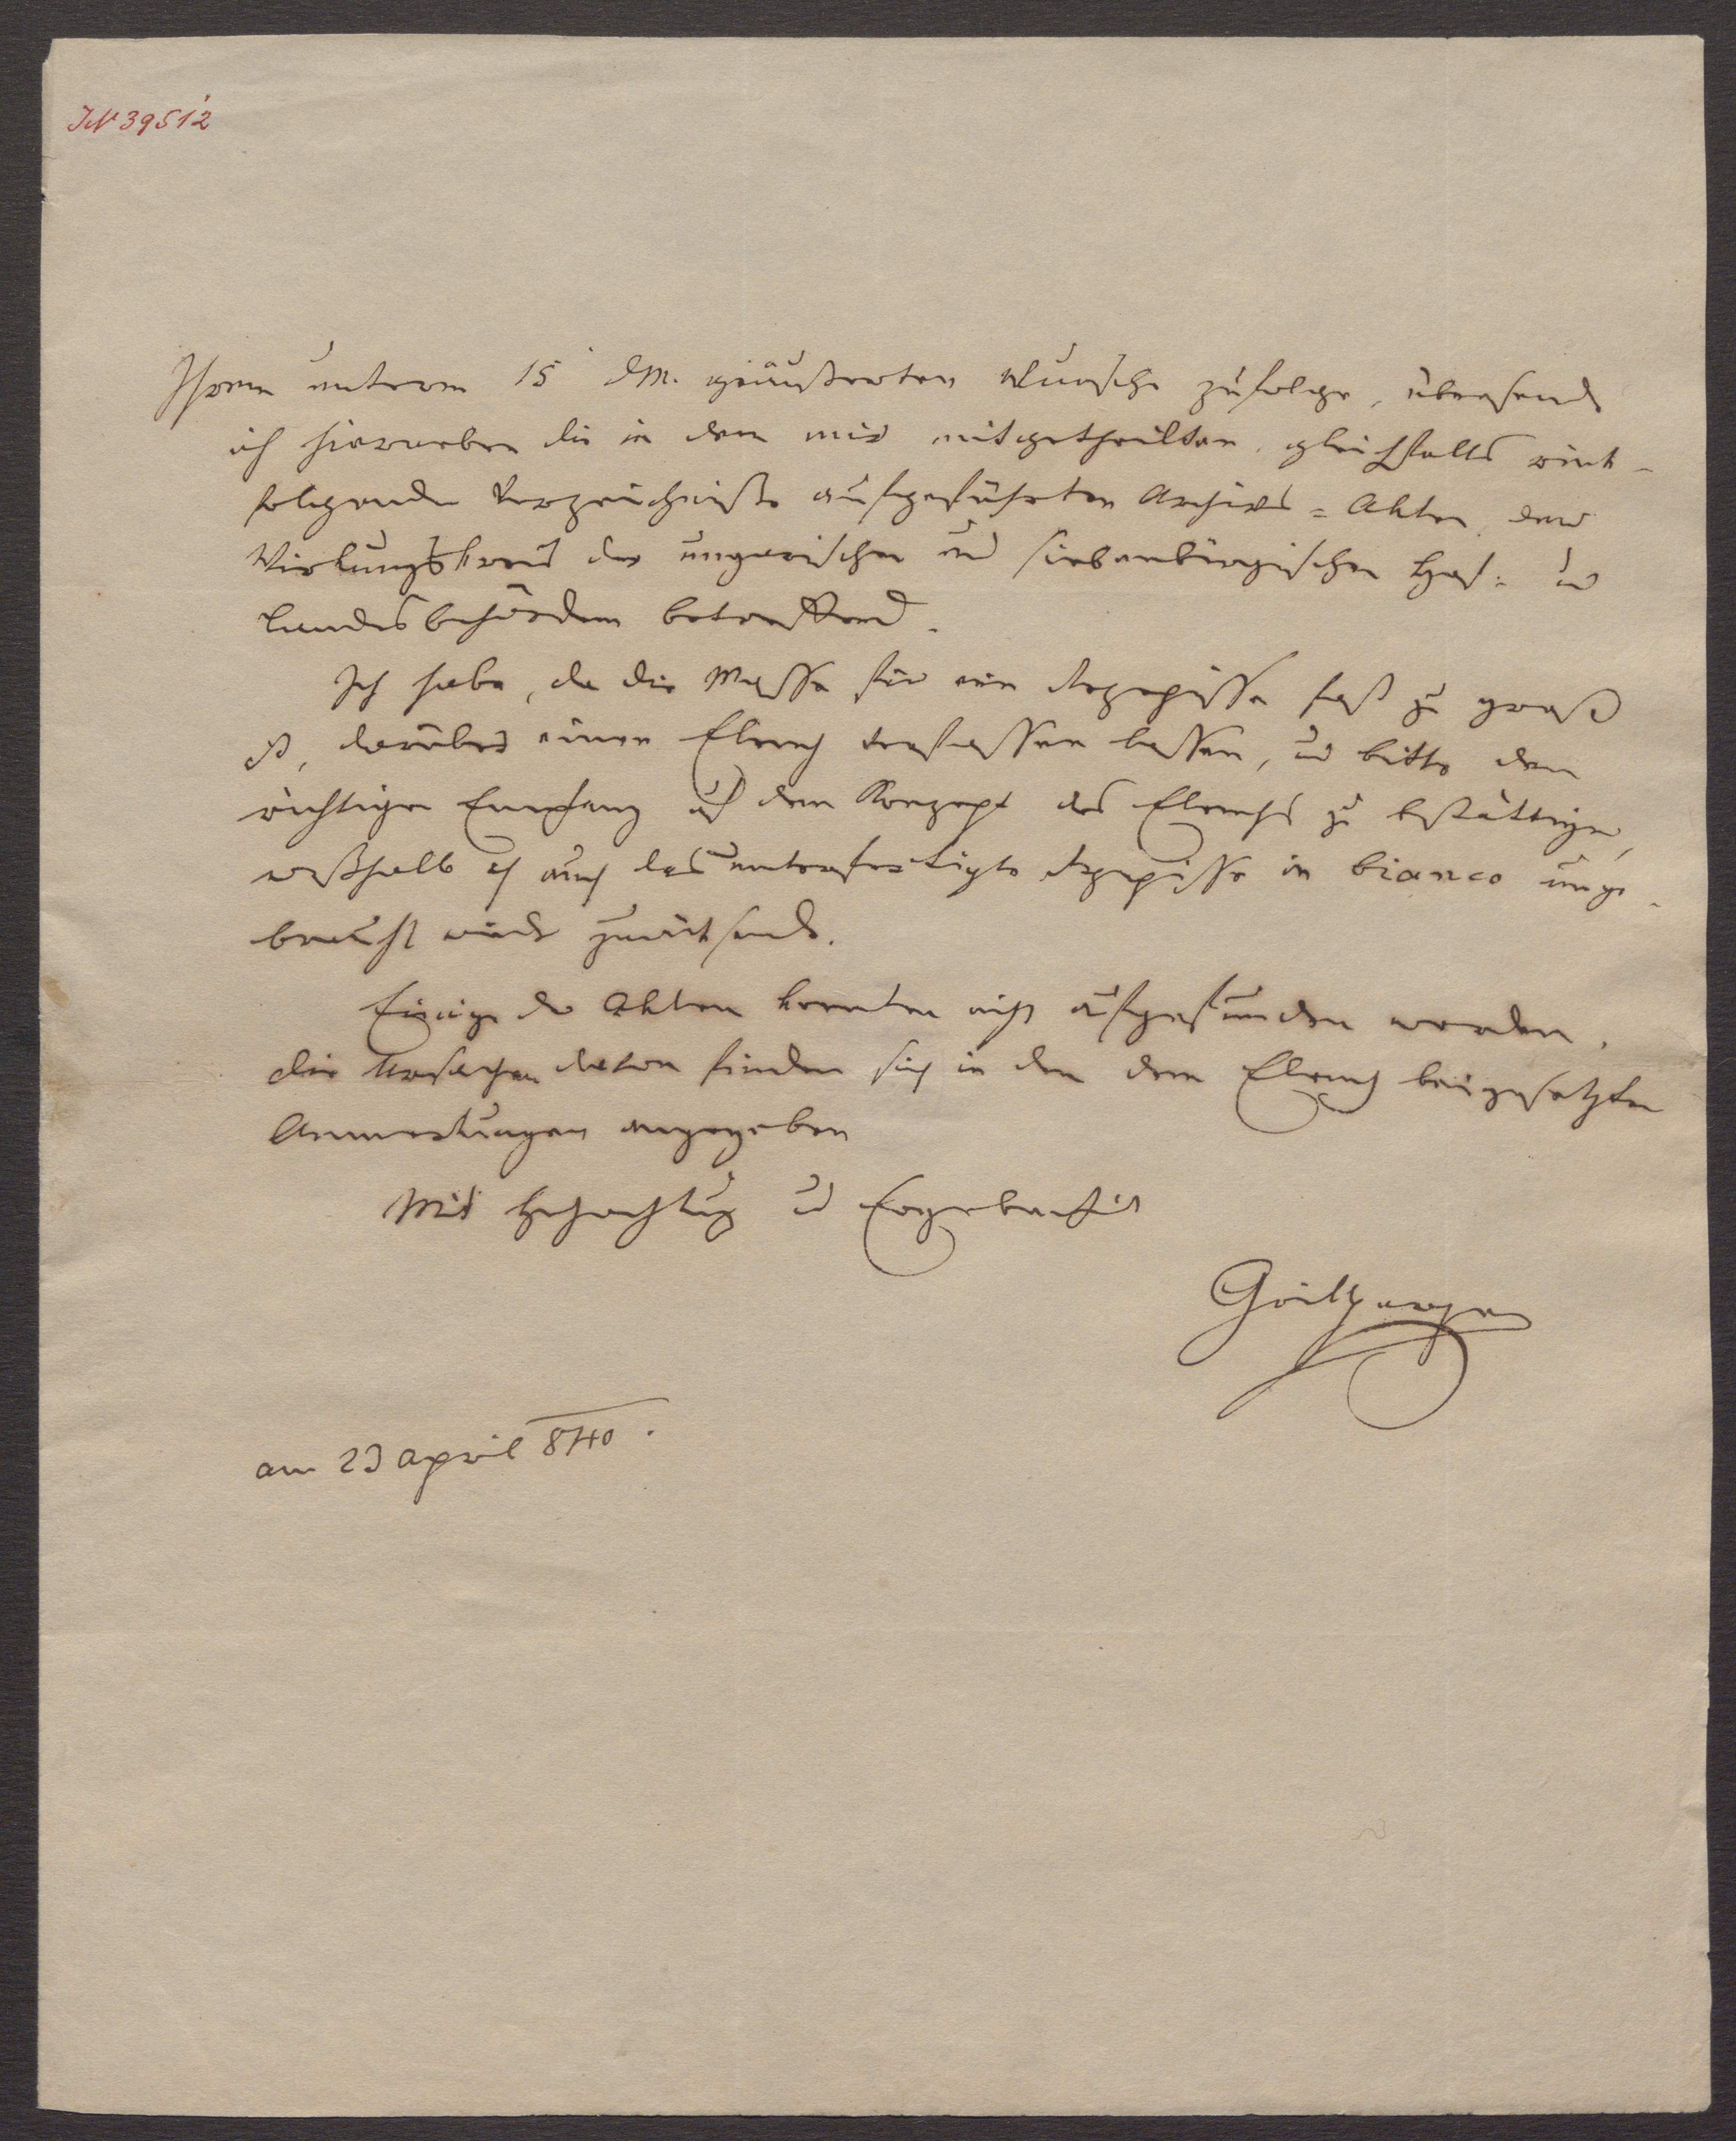 IN 39512
Ihrem unterm 15 d.M. geäußerten Wunsche zufolge, übersende
ich hierneben die in dem mir mitgetheilten, gleichfalls rück-
folgenden Verzeichniße aufgeführten Archivs=Akten, den
Wirkungskreis der ungarischen und siebenbürgischen Hof= und
Landesbehörden betreffend.
Ich habe, da die Masse für ein Rezepisse fast zu groß
ist, darüber einen Elench verfassen lassen, und bitte den
richtigen Empfang auf dem Konzept des Elenchs zu bestättigen,
weßhalb ich auch das unterfertigte Rezepisse in bianco unge-
braucht wieder zurücksende.
Einige der Akten konnten nicht aufgefunden werden,
die Ursachen davon finden sich in den dem Elench beigesetzten
Anmerkungen angegeben
Mit Hochachtung und Ergebenheit
Grillparzer
am 23 April 840.